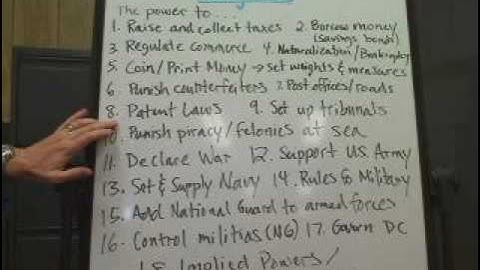 The power to...
1. Raise and collect taxes 2. Borrow money
(Savings bonds)
3. Regulate commerce 4. Naturalization/Bankruptcy
5. Coin/Print Money → set weights & measures
6. Punish counterfeiters 7. Post offices/roads
8. Patent Laws 9. Set up tribunals
10. Punish piracy/felonies at sea
11. Declare War 12. Support U.S. Army
13. Set & Supply Navy 14. Rules for Military
15. Add National Guard to armed forces
16. Control militias (NG) 17. Govern DC
18. Implied Powers/